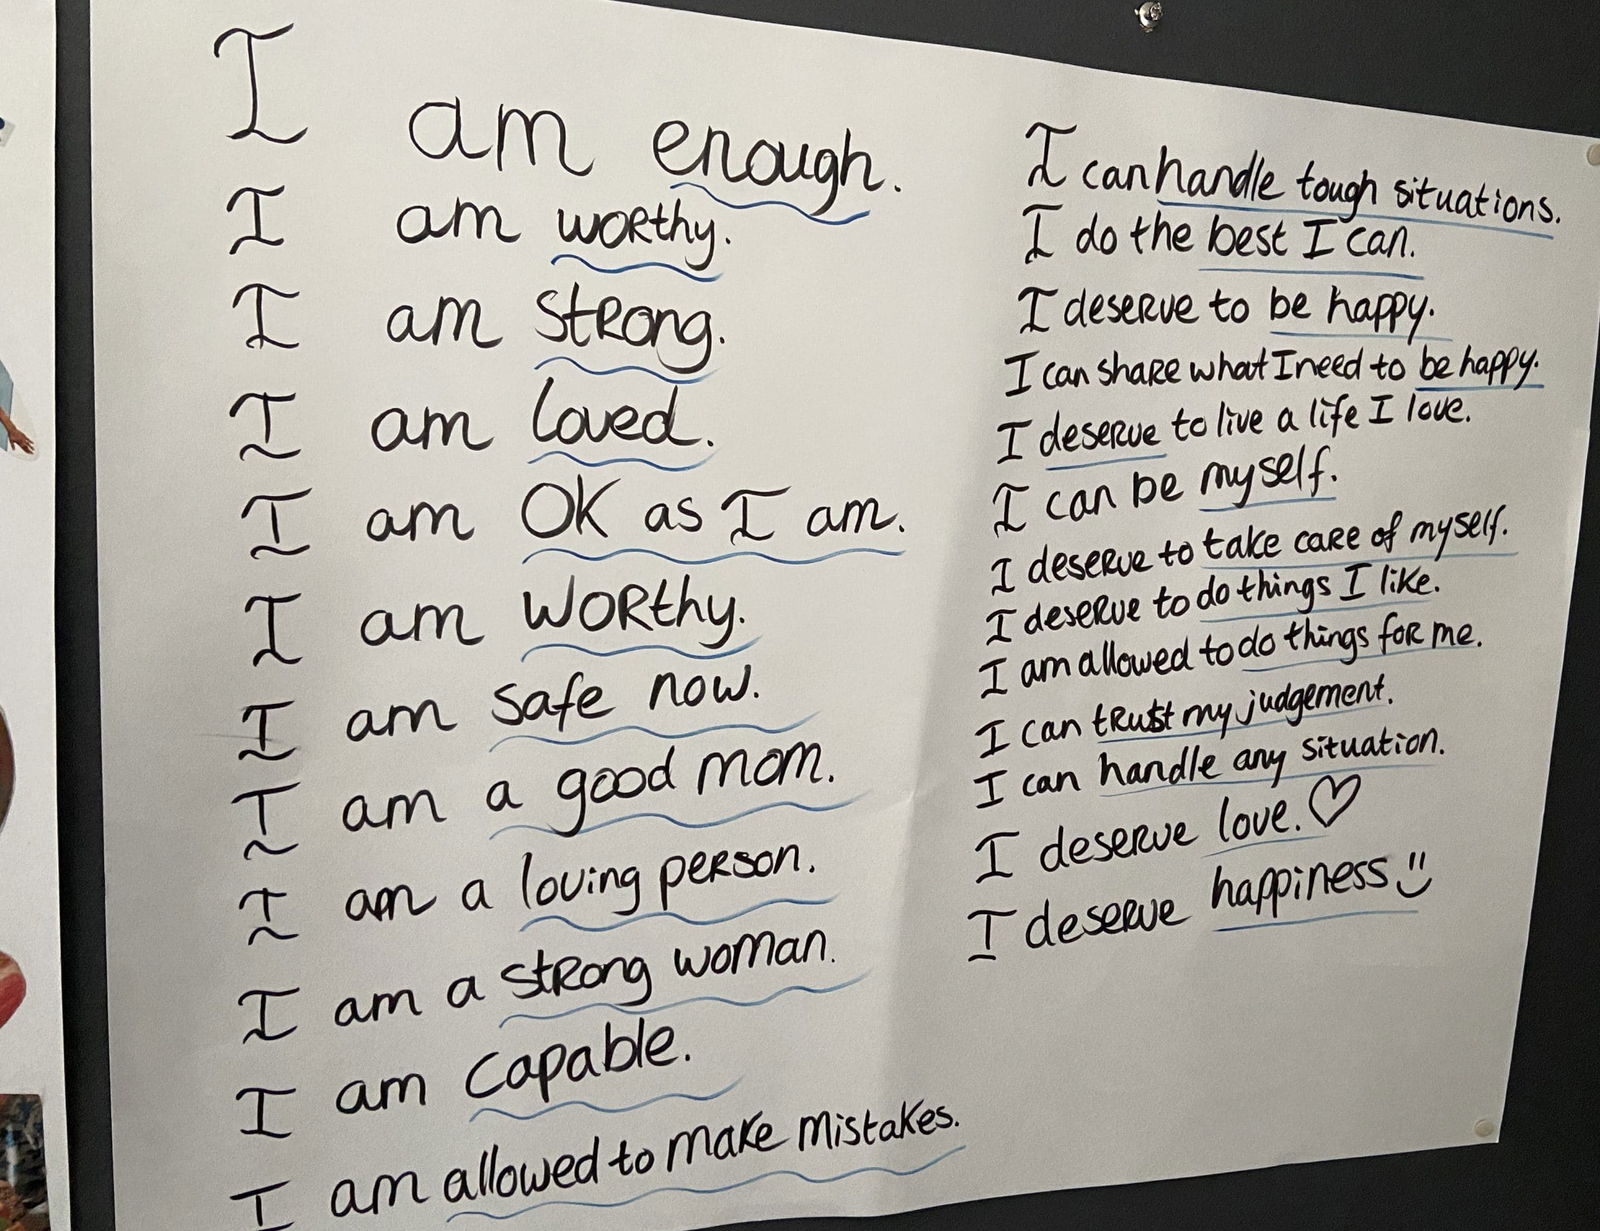 I am enough.
I am worthy.
I am strong.
I am loved.
I am OK as I am.
I am worthy.
I am safe now.
I am a good mom.
I am a loving person.
I am a strong woman.
I am capable.
I am allowed to make mistakes.
I can handle tough situations.
I do the best I can.
I deserve to be happy.
I can share what I need to be happy.
I deserve to live a life I love.
I can be myself.
I deserve to take care of myself.
I deserve to do things I like.
I am allowed to do things for me.
I can trust my judgement.
I can handle any situation.
I deserve love.♡
I deserve happiness